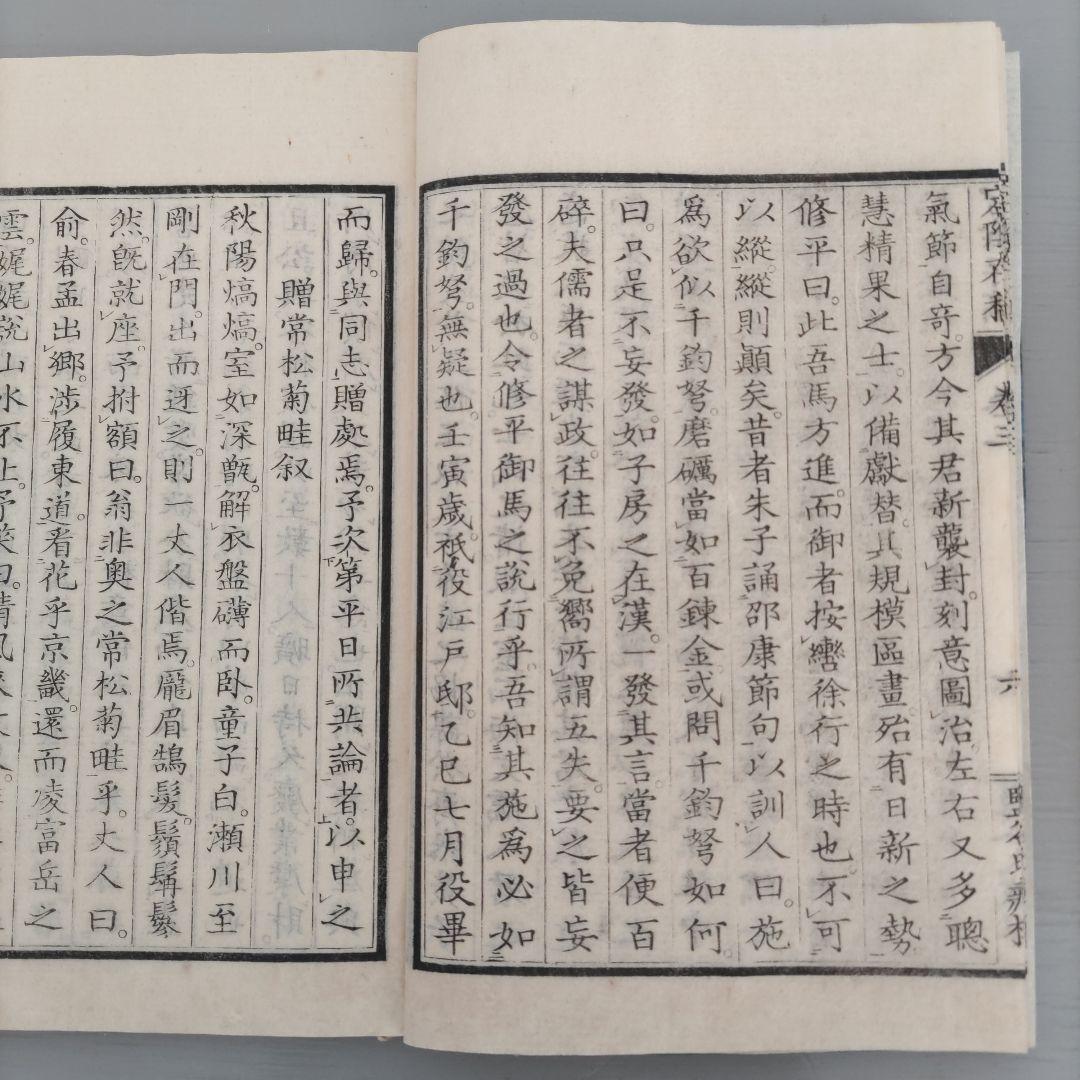 氣節自奇。方今其君新襲封。刻意圖治。左右又多聰
慧精果之士。以備獻替。其規模區畫。殆有日新之勢。
修平曰。此吾馬方進。而御者按轡徐行之時也。不可
以縱。縱則顛矣。昔者朱子誦邵康節句。以訓人曰。施
爲欲似千鈞弩。磨礪當如百鍊金。或問千鈞弩如何。
曰。只是不妄發。如子房之在漢。一發其言。當者便百
碎。夫儒者之謀政。往往不免嚮所謂五失。要之皆妄
發之過也。令修平御馬之說行乎。吾知其施爲必如
千鈞弩。無疑也。壬寅歲。祇役江戶邸。乙巳七月役畢
而歸。與同志贈處焉。予次第平日所共論者。以申之
贈常松菊畦叙
秋陽熇熇。室如深甑。解衣盤礴而臥。童子白。瀨川至
剛在門。出而迓之。則一丈人偕焉。龐眉鵠髮。鬚髯鬖
然。旣就座。予拊額曰。翁非奧之常松菊畦乎。丈人曰。
俞。春孟出鄉。涉履東道。看花乎京畿。還而凌富岳之
雲。娓娓說山水不止。予笑曰。清風
卷三
六